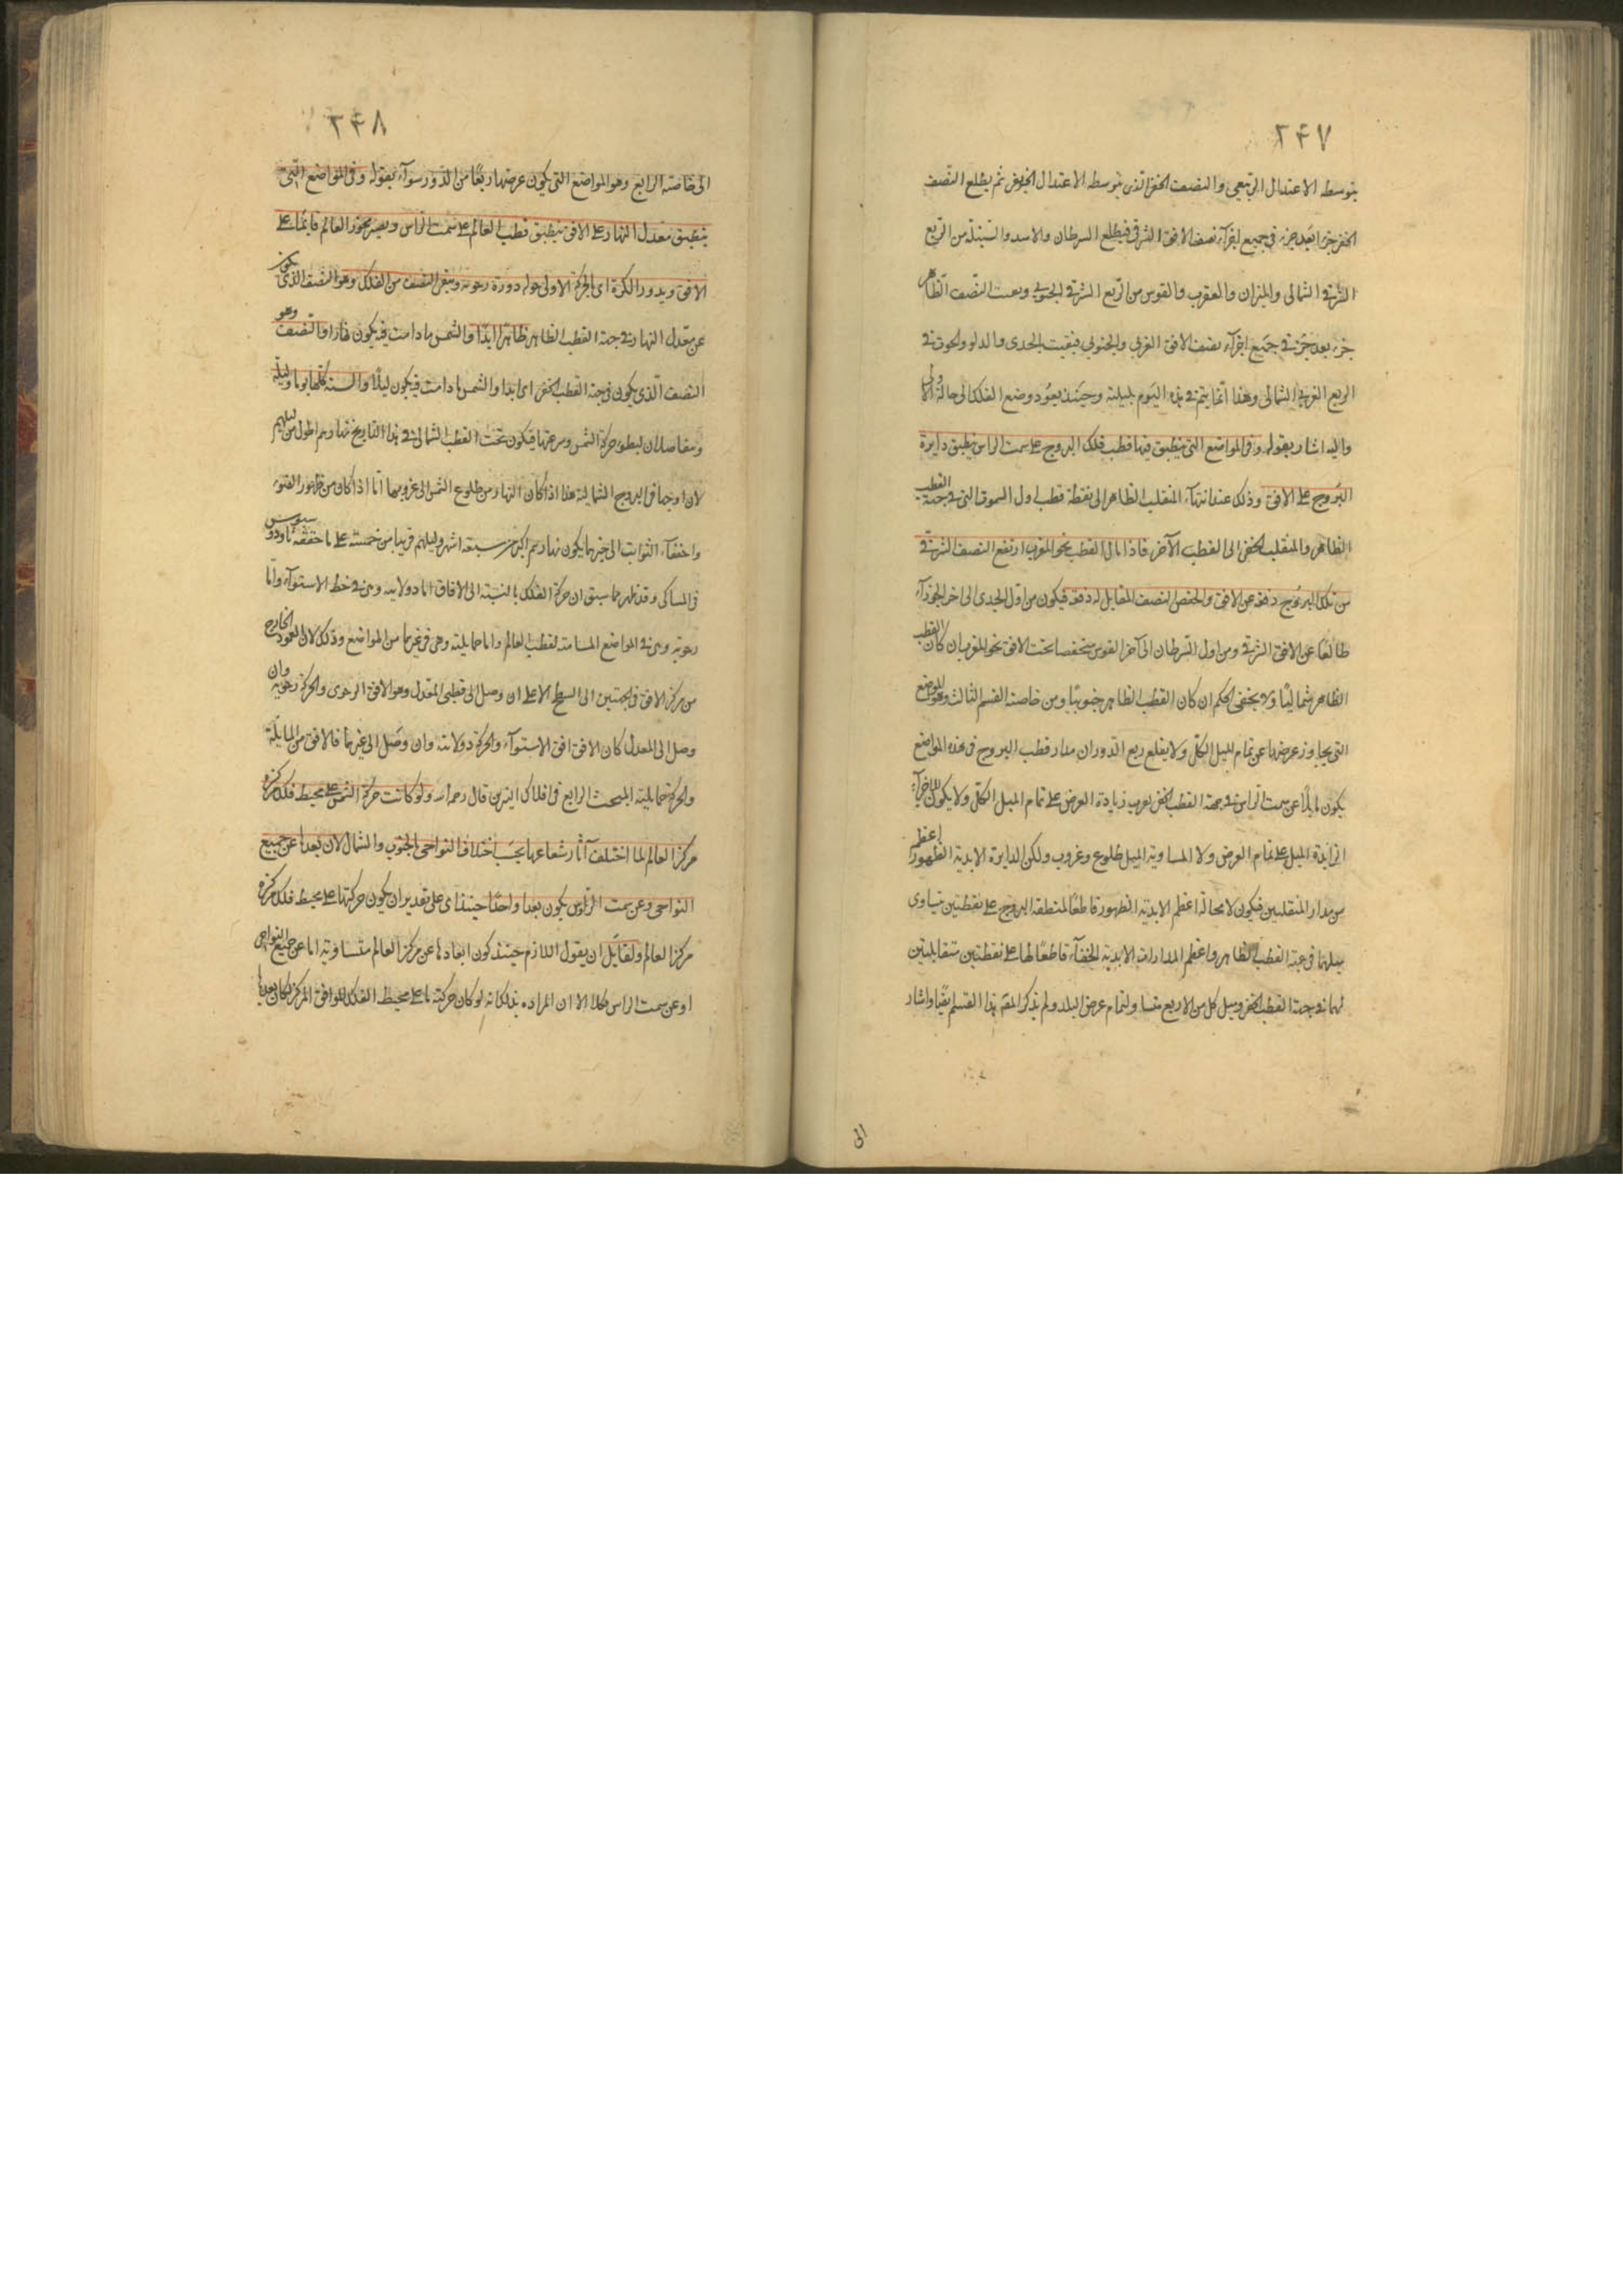 ٢٤٧
يتوسطه الاعتدال الربيعى والنصف الخفى الذى يتوسطه الاعتدال الخريفى ثم يطلع النصف
الخفى جزءا بعد جزء فى جميع اجزاء نصف الافق الشرقى فيطلع السرطان والاسد والسنبلة من الربع
الشرقى الشمالى والميزان والعقرب والقوس من الربع الشرقى الجنوبى ويغيب النصف الظاهر
جزء بعد جزء فى جميع اجزاء نصف الافق الغربى والجنوبى فيغيب الجدى والدلو والحوت فى
الربع الغربى الشمالى وهذا انما يتم فى هذه اليوم بليلته وحينئذ يعود وضع الفلك الى حاله الاولى
واليه اشار بقوله وفى المواضع التى ينطبق فيها قطب فلك البروج على سمت الراس ينطبق دايرة
البروج على الافق وذلك عند انتهاء المنقلب الظاهر الى نقطة قطب اول السموت التى فى جهة القطب
الظاهر والمنقلب الخفى الى القطب الآخر فاذا مال القطب نحو المغرب ارتفع النصف الشرقى
من تلك البروج دفعة عن الافق وانخفض النصف المقابل له دفعة فيكون من اول الجدى الى اخر الجوزاء
طالعا عن الافق الشرقى ومن اول السرطان الى آخر القوس منخفضا تحت الافق نحو المغرب ان كان القطب
الظاهر شماليا ولا يخفى الحكم ان كان القطب الظاهر جنوبيا ومن خاصة القسم الثالث وهو المواضع
التى يجاوز عرضها عن تمام الميل الكلى ولا يبلغ ربع الدور ان مدار قطب البروج فى هذه المواضع
يكون مايلا عن سمت الراس فى جهة القطب الخفى بقدر زيادة العرض على تمام الميل الكلى ولا يكون للاجزاء
الزايدة الميل على تمام العرض ولا المساوية الميل طلوع وغروب ولكن الدايرة الابدية الظهور اعظم
من مدار المنقلبين فيكون لا محالة اعظم الابدية الظهور قاطعا لمنطقة البروج على نقطتين يتساوى
ميلهما فى جهة القطب الظاهر واعظم المدارات الابدية الخفاء قاطعا لها على نقطتين متقابلتين
لهما فى جهة القطب الخفى وميل كل من الاربع مساو لتمام عرض البلد ولم يذكر المص هذا القسم ايضا واشار
الى
٢٤٨
الى خاصته الرابع وهو المواضع التى يكون عرضها ربعا من الدور سواء بقوله وفى المواضع التى
ينطبق معدل النهار على الافق ينطبق قطب العالم على سمت الراس ويصير محور العالم قايما على
الافق ويدور الكرة اى بالحركة الاولى حوله دورة رحوية ويبقى النصف من الفلك وهو النصف الذى يكون
عن معدل النهار فى جهة القطب الظاهر ظاهرا ابدا والشمس ما دامت فيه يكون نهارا والنصف وهو
النصف الذى يكون فى جهة القطب الخفى اى ابدا والشمس ما دامت فيه يكون ليلا والسنة كلها يوما وليلة
ويتفاضلان لبطؤ حركة الشمس وسرعتها فيكون تحت القطب الشمالى فى هذا التاريخ نهارهم اطول من ليلهم
لان اوجها فى البروج الشمالية هذا اذا كان النهار من طلوع الشمس الى غروبها اما اذا كان من ظهور الضوء
واختفاء الثوابت الى ضدهما يكون نهارهم اكثر من سبعة اشهر وليلهم قريبا من خمسة على ما حققه ثاودوسيوس
فى المساكن وقد ظهر مما سبق ان حركة الفلك بالنسبة الى الافاق اما دولابية وهى فى خط الاستواء واما
رحوية وهى فى المواضع المسامتة لقطب العالم واما حمايلية وهى فى غيرهما من المواضع وذلك لان العمود الخارج
من مركز الافق فى الجهتين الى السطح الاعلى ان وصل الى قطبى المعدل وهو الافق الرحوى والحركة رحوية وان
وصل الى المعدل كان الافق افق الاستواء والحركة دولابية وان وصل الى غيرهما فالافق من المايلة
والحركة حمايلية المبحث الرابع فى افلاك النيرين قال رحمه الله ولو كانت حركة الشمس على محيط فلك مركزه
مركز العالم لما اختلف آثار شعاعها بحسب اختلاف النواحى الجنوب والشمال لان بعدها عن جميع
النواحى وعن سمت الراوس يكون بعدا واحدا حينئذ اى على تقدير ان يكون حركتها على محيط فلك مركزه
مركز العالم ولقايل ان يقول اللازم حينئذ كون ابعادها عن مركز العالم متساوية اما عن جميع النواحى
او عن سمت الراس فكلا الا ان المراد بذلك انه لو كان حركته ما على محيط الفلك الموافق المركز لكان بعدها